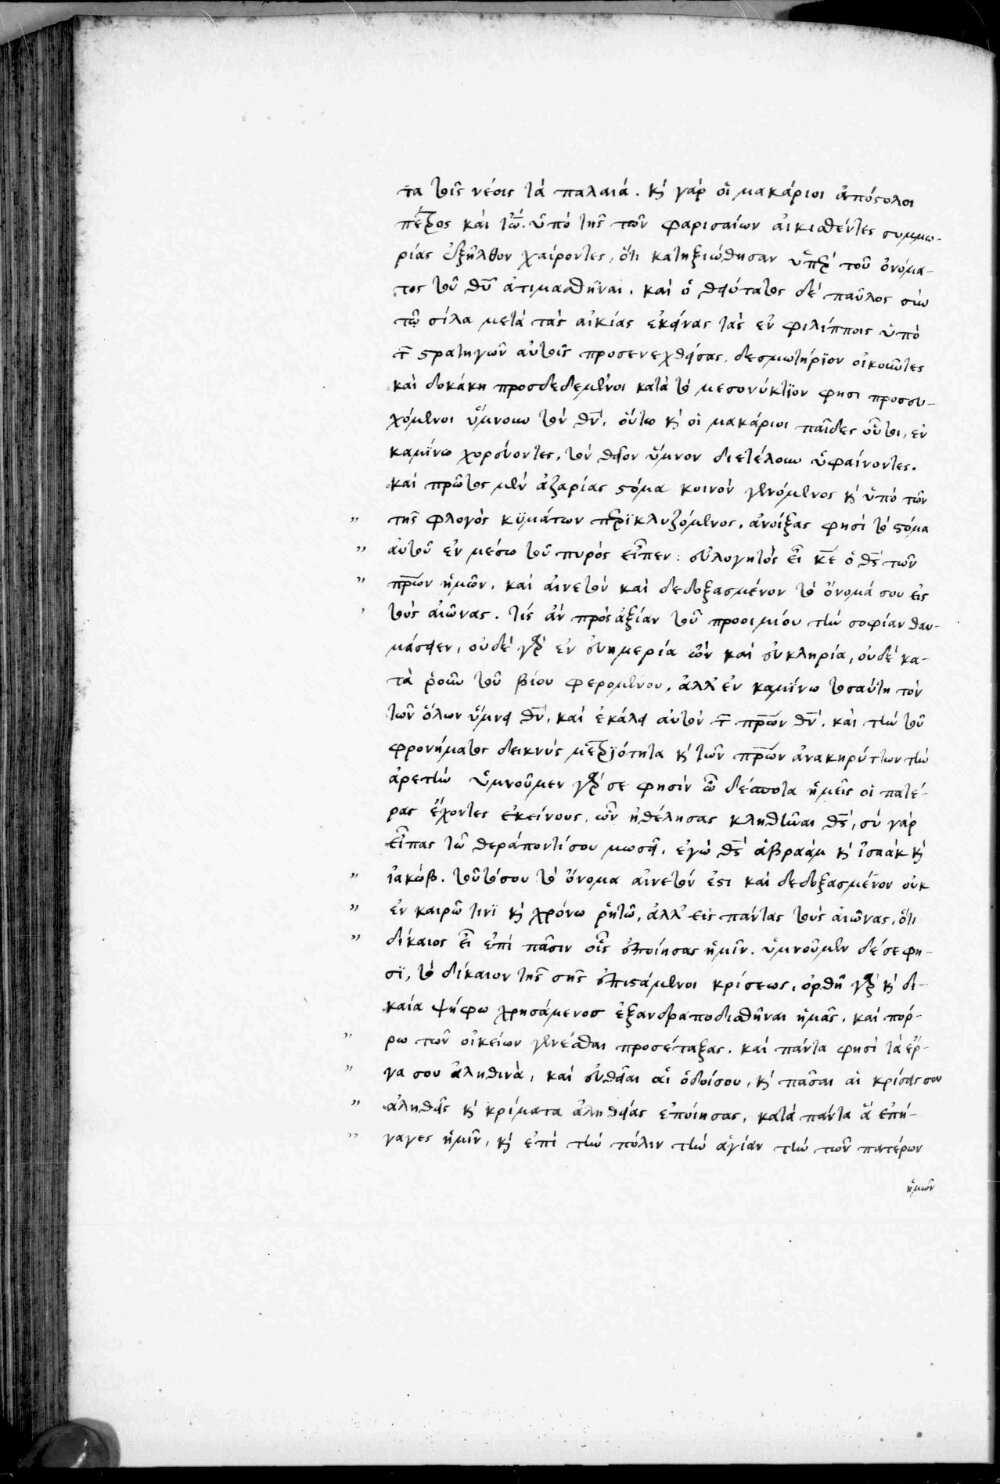 τα τοῖς νέοις τὰ παλαιά. κ̀ γάρ οἱ μακάριοι ἀπόστολοι
πέτρος καὶ ἰω̅. ὑπὸ τῆς τῶν φαρισαίων αἰκισθέντες συμμο-
ρίας ἐξῆλθον χαίροντες, ὅτι κατηξιώθησαν ὑπὲρ τοῦ ὀνόμα-
τος τοῦ θυ̅ ἀτιμασθῆναι. καὶ ὁ θειότατος δὲ παῦλος σὺν
τῷ σίλα μετὰ τὰς αἰκίας ἐκείνας τὰς ἐν φιλίπποις ὑπὸ
τ̅ στρατηγῶν αὐτοῖς προσενεχθείσας, δεσμωτήριον οἰκοῦντες
καὶ ποδοκάκη προσδεδεμένοι κατὰ τὸ μεσονύκτϊον φησι προσευ-
χόμενοι ὕμνουν τὸν θν̅. οὕτω κ̀ οἱ μακάριοι παῖδες οὗτοι, ἐν
καμίνω χορεύοντες, τὸν θεῖον ὕμνον διετέλουν ὑφαίνοντες.
καὶ πρῶτος μὲν ἀζαρίας στόμα κοινὸν γενόμενος κ̀ ὑπὸ τῶν
" τῆς φλογὸς κϋμάτων περϊκλυζόμενος, ἀνοίξας φησὶ τὸ στόμα
" αὐτοῦ ἐν μέσω τοῦ πυρὸς εἶπεν: εὐλογητὸς εἶ κε̅ ὁ θς̅ τῶν
" πρ̅ων ἡμῶν, καὶ αἰνετὸν καὶ δεδοξασμένον τὸ ὄνομά σου εἰς
' τοὺς αἰῶνας. τίς ἂν πρὸς ἀξίαν τοῦ προοιμίου τὴν σοφίαν θαυ-
μάσειεν, οὐδὲ γὰρ ἐν εὐημερία ὢν καὶ εὐκληρία, οὐδὲ κα-
τὰ ῥοῦν τοῦ βίου φερομένου, ἀλλ' ἐν καμίνω τοσαύτη τὸν
τῶν ὅλων ὕμνει θν̅, καὶ ἐκάλει αὐτὸν τ̅ πρ̅ων θν̅, καὶ τὴν τοῦ
φρονήματος δεικνὺς μετρϊότητα κ̀ τῶν πρ̅ων ἀνακηρύττων τὴν
ἀρετὴν ὑμνοῦμεν γάρ σε φησὶν ὦ δέσποτα ἡμεῖς οἱ πατέ-
ρας ἔχοντες ἐκείνους, ὧν ἠθέλησας κληθῆναι θς̅, σὺ γὰρ
εἶπας τῶ θεράποντί σου μωσεῖ, ἐγὼ θς̅ ἀβραὰμ κ̀ ἰσαὰκ κ̀
" ἰακώβ. τοῦτό σου τὸ ὄνομα αἰνετόν ἐστι καὶ δεδοξασμένον οὐκ
" ἐν καιρῶ τινϊ κ̀ χρόνω ῥητῶ, ἀλλ' εἰς πάντας τοὺς αἰῶνας, ὅτι
" δίκαιος εἶ ἐπὶ πᾶσιν οἷς ἐποίησας ἡμῖν. ὑμνοῦμεν δέ σε φη-
σϊ, τὸ δίκαιον τῆς σῆς ἐπιστάμενοι κρίσεως, ὀρθῆ γὰρ κ̀ δι-
καία ψήφω χρησάμενος ἐξανδραποδισθῆναι ἡμᾶς, καὶ πόρ-
" ρω τῶν οἰκείων γενέσθαι προσέταξας. καὶ πάντα φησὶ τὰ ἔρ-
" γα σου ἀληθινὰ, καὶ εὐθεῖαι αἱ ὁδοί σου, κ̀ πᾶσαι αἱ κρίσεις σου
" ἀληθεῖς κ̀ κρίματα ἀληθείας ἐποίησας, κατὰ πάντα ἃ ἐπή-
" γαγες ἡμῖν, κ̀ ἐπὶ τὴν πόλιν τὴν ἁγίαν τὴν τῶν πατέρων
ἡμῶν